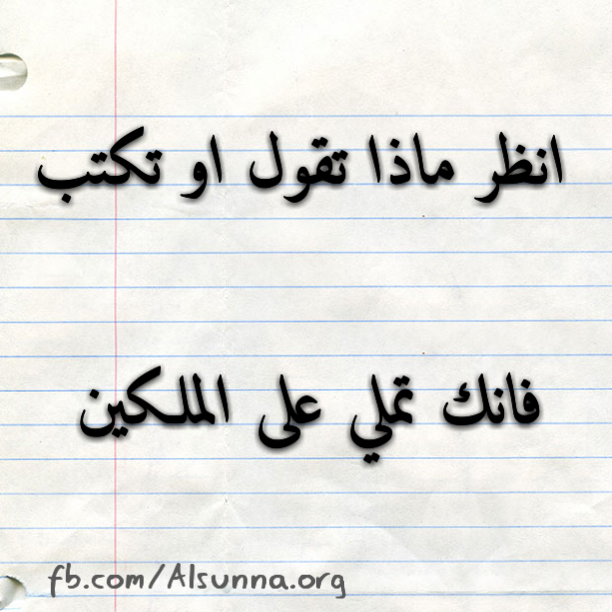 انظر ماذا تقول او تكتب
فانك تملي على الملكين
fb.com/Alsunna.org